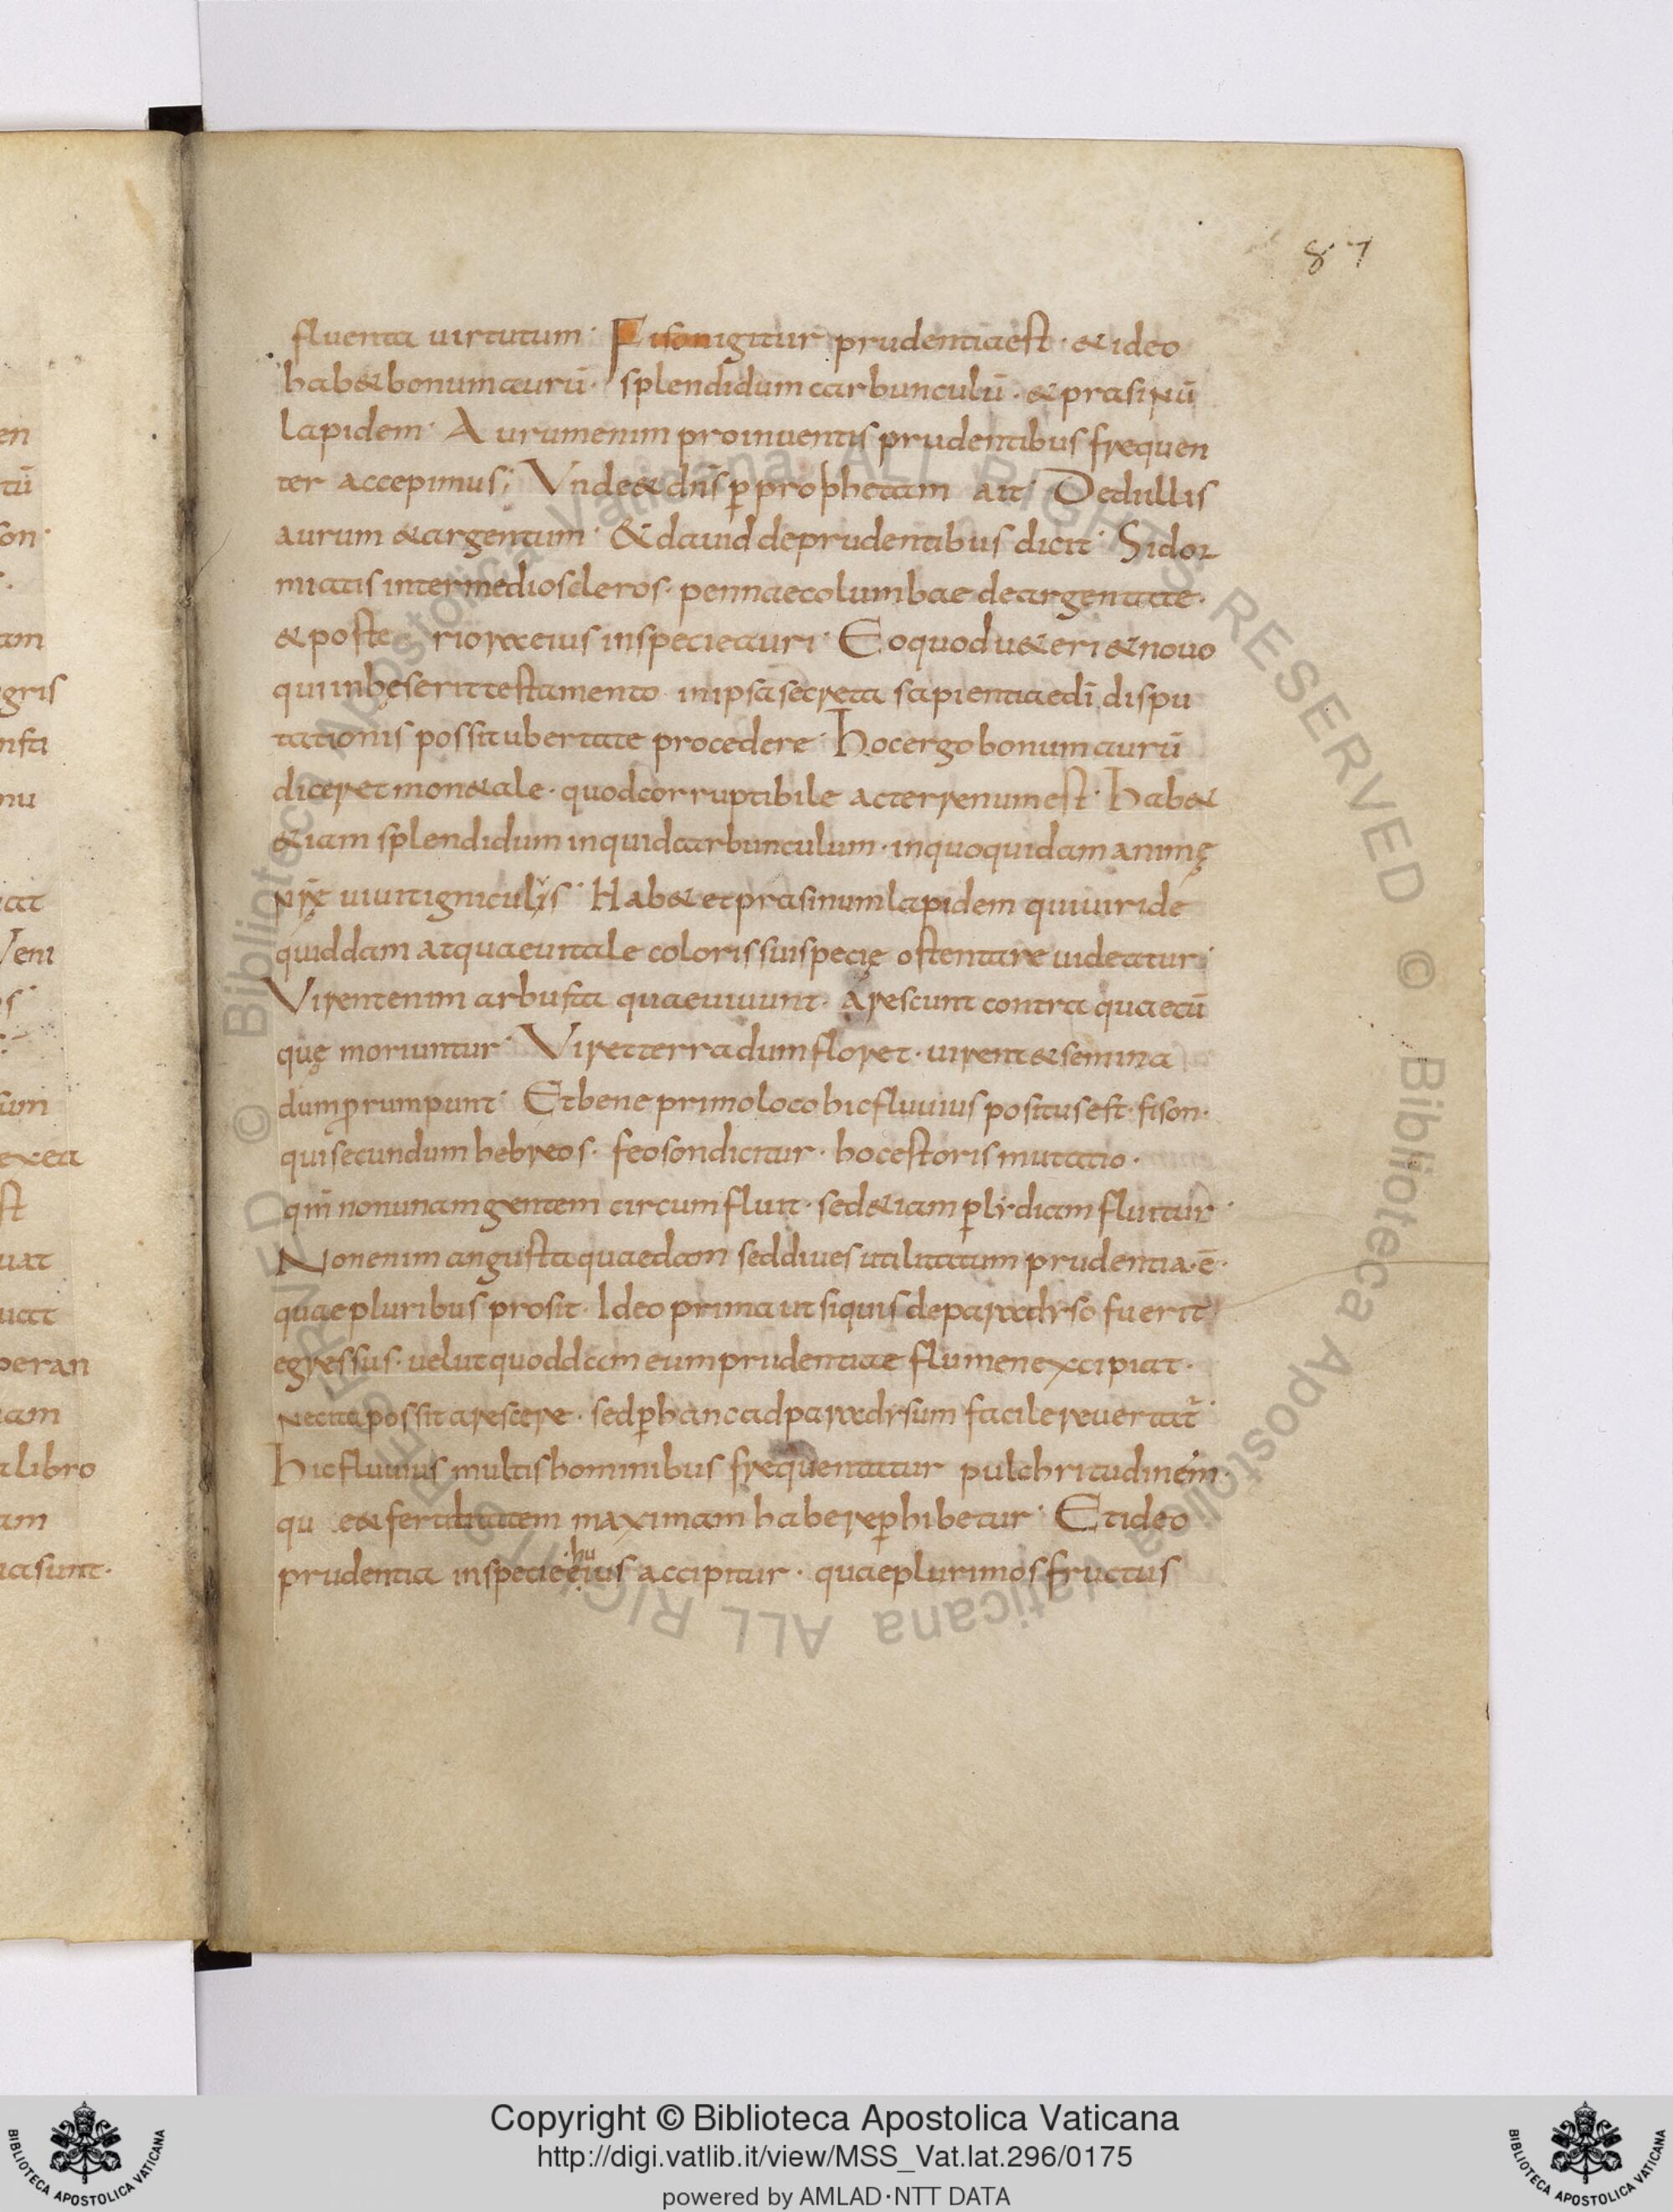 87
fluenta uirtutum· Fison igitur prudentia est· & ideo
hab& bonum aurū· splendidum carbunculū· & prasinū
lapidem· Aurum enim pro inuentis prudentibus frequen
ter accepimus; Vnde & dn̄s p̱ prophetam ait· Dedi illis
aurum & argentum· & dauid de prudentibus dicit· Si dor
miatis inter medios cleros· pennae columbae deargentatae·
& poste riora eius in specie auri· Eo quod u&eri & nouo
qui inhęserit testamento in ipsa secreta sapientiae dī dispu
tationis possit ubertate procedere· Hoc ergo bonum aurū
diceret mon&ale· quod corruptibile ac terrenum est· hab&
&iam splendidum inquid carbunculum· in quo quidam animę
uiuit igniculis· Hab& et prasinum lapidem qui uiride
quiddam atquae uitale coloris sui specię ostentare uideatur·
Virent enim arbusta quae uiuunt· arescunt contra quaetū
quę moriuntur· Viret terra dum floret· uirent & semina
dum p̱rumpunt· Et bene primo loco hic fluuius positus est· fison·
qui secundum hebreos· feoson dicitur· hoc est oris mutatio·
qui non unam gentem circumfluit· sed &iam p̱ lydiam fluitur·
Non enim angusta quaedam sed diues utilitatum prudentia· ē·
quae pluribus prosit· Ideo prima ut siquis de paradyso fuerit
egressus· uelut quoddam eum prudentiae flumen excipiat·
ne cito possit arescere· sed p̱ hanc ad paradysum facile reuertat̄·
Hic fluuius multis hominibus frequentatur pulchritudinem·
qu e & fertilitatem maximam habere p̱hibetur· Et ideo
prudentia in specie ·hu eius accipitur· quae plurimos fructus
Copyright © Biblioteca Apostolica Vaticana
http://digi.vatlib.it/view/MSS_Vat.lat.296/0175
powered by AMLAD·NTT DATA